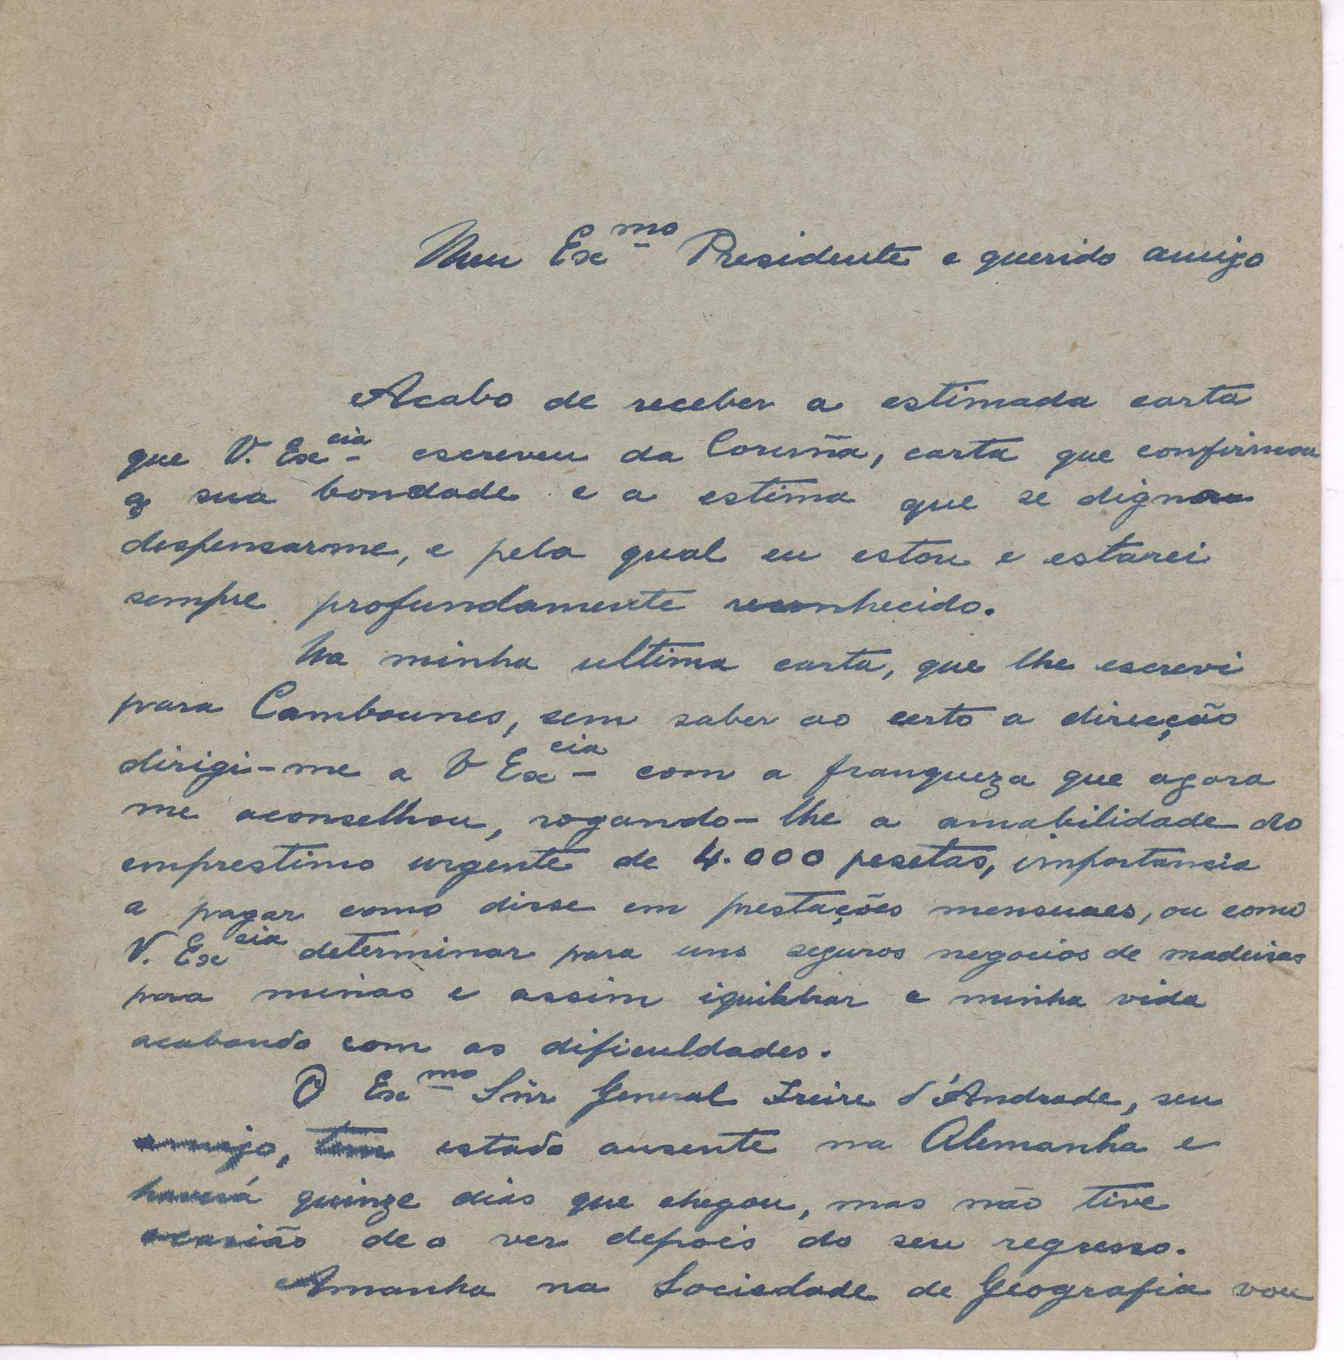 Meu Ex.mo Presidente e querido amigo
Acabo de receber a estimada carta
que V. Ex.cia escreveu da Coruña, carta que confirmou
a sua bondade e a estima que se dignou
despensarme, e pela qual eu estou e estarei
sempre profundamente reconhecido.
Na minha ultima carta, que lhe escrevi
para Cambounes, sem saber ao certo a direcção
dirigi-me a V Ex.cia com a franqueza que agora
me aconselhou, rogando-lhe a amabilidade do
emprestimo urgente de 4.000 pesetas, importancia
a pagar como disse em prestações mensuaes, ou como
V. Ex.cia determinar para uns seguros negocios de madeiras
para minas e assim iquilibrar a minha vida
acabando com as dificuldades.
O Ex.mo Snr General Freire d'Andrade, seu
amigo, tem estado ausente na Alemanha e
haverá quinze dias que chegou, mas não tive
ocasião de o ver depois do seu regresso.
Amanha na Sociedade de Geografia vou